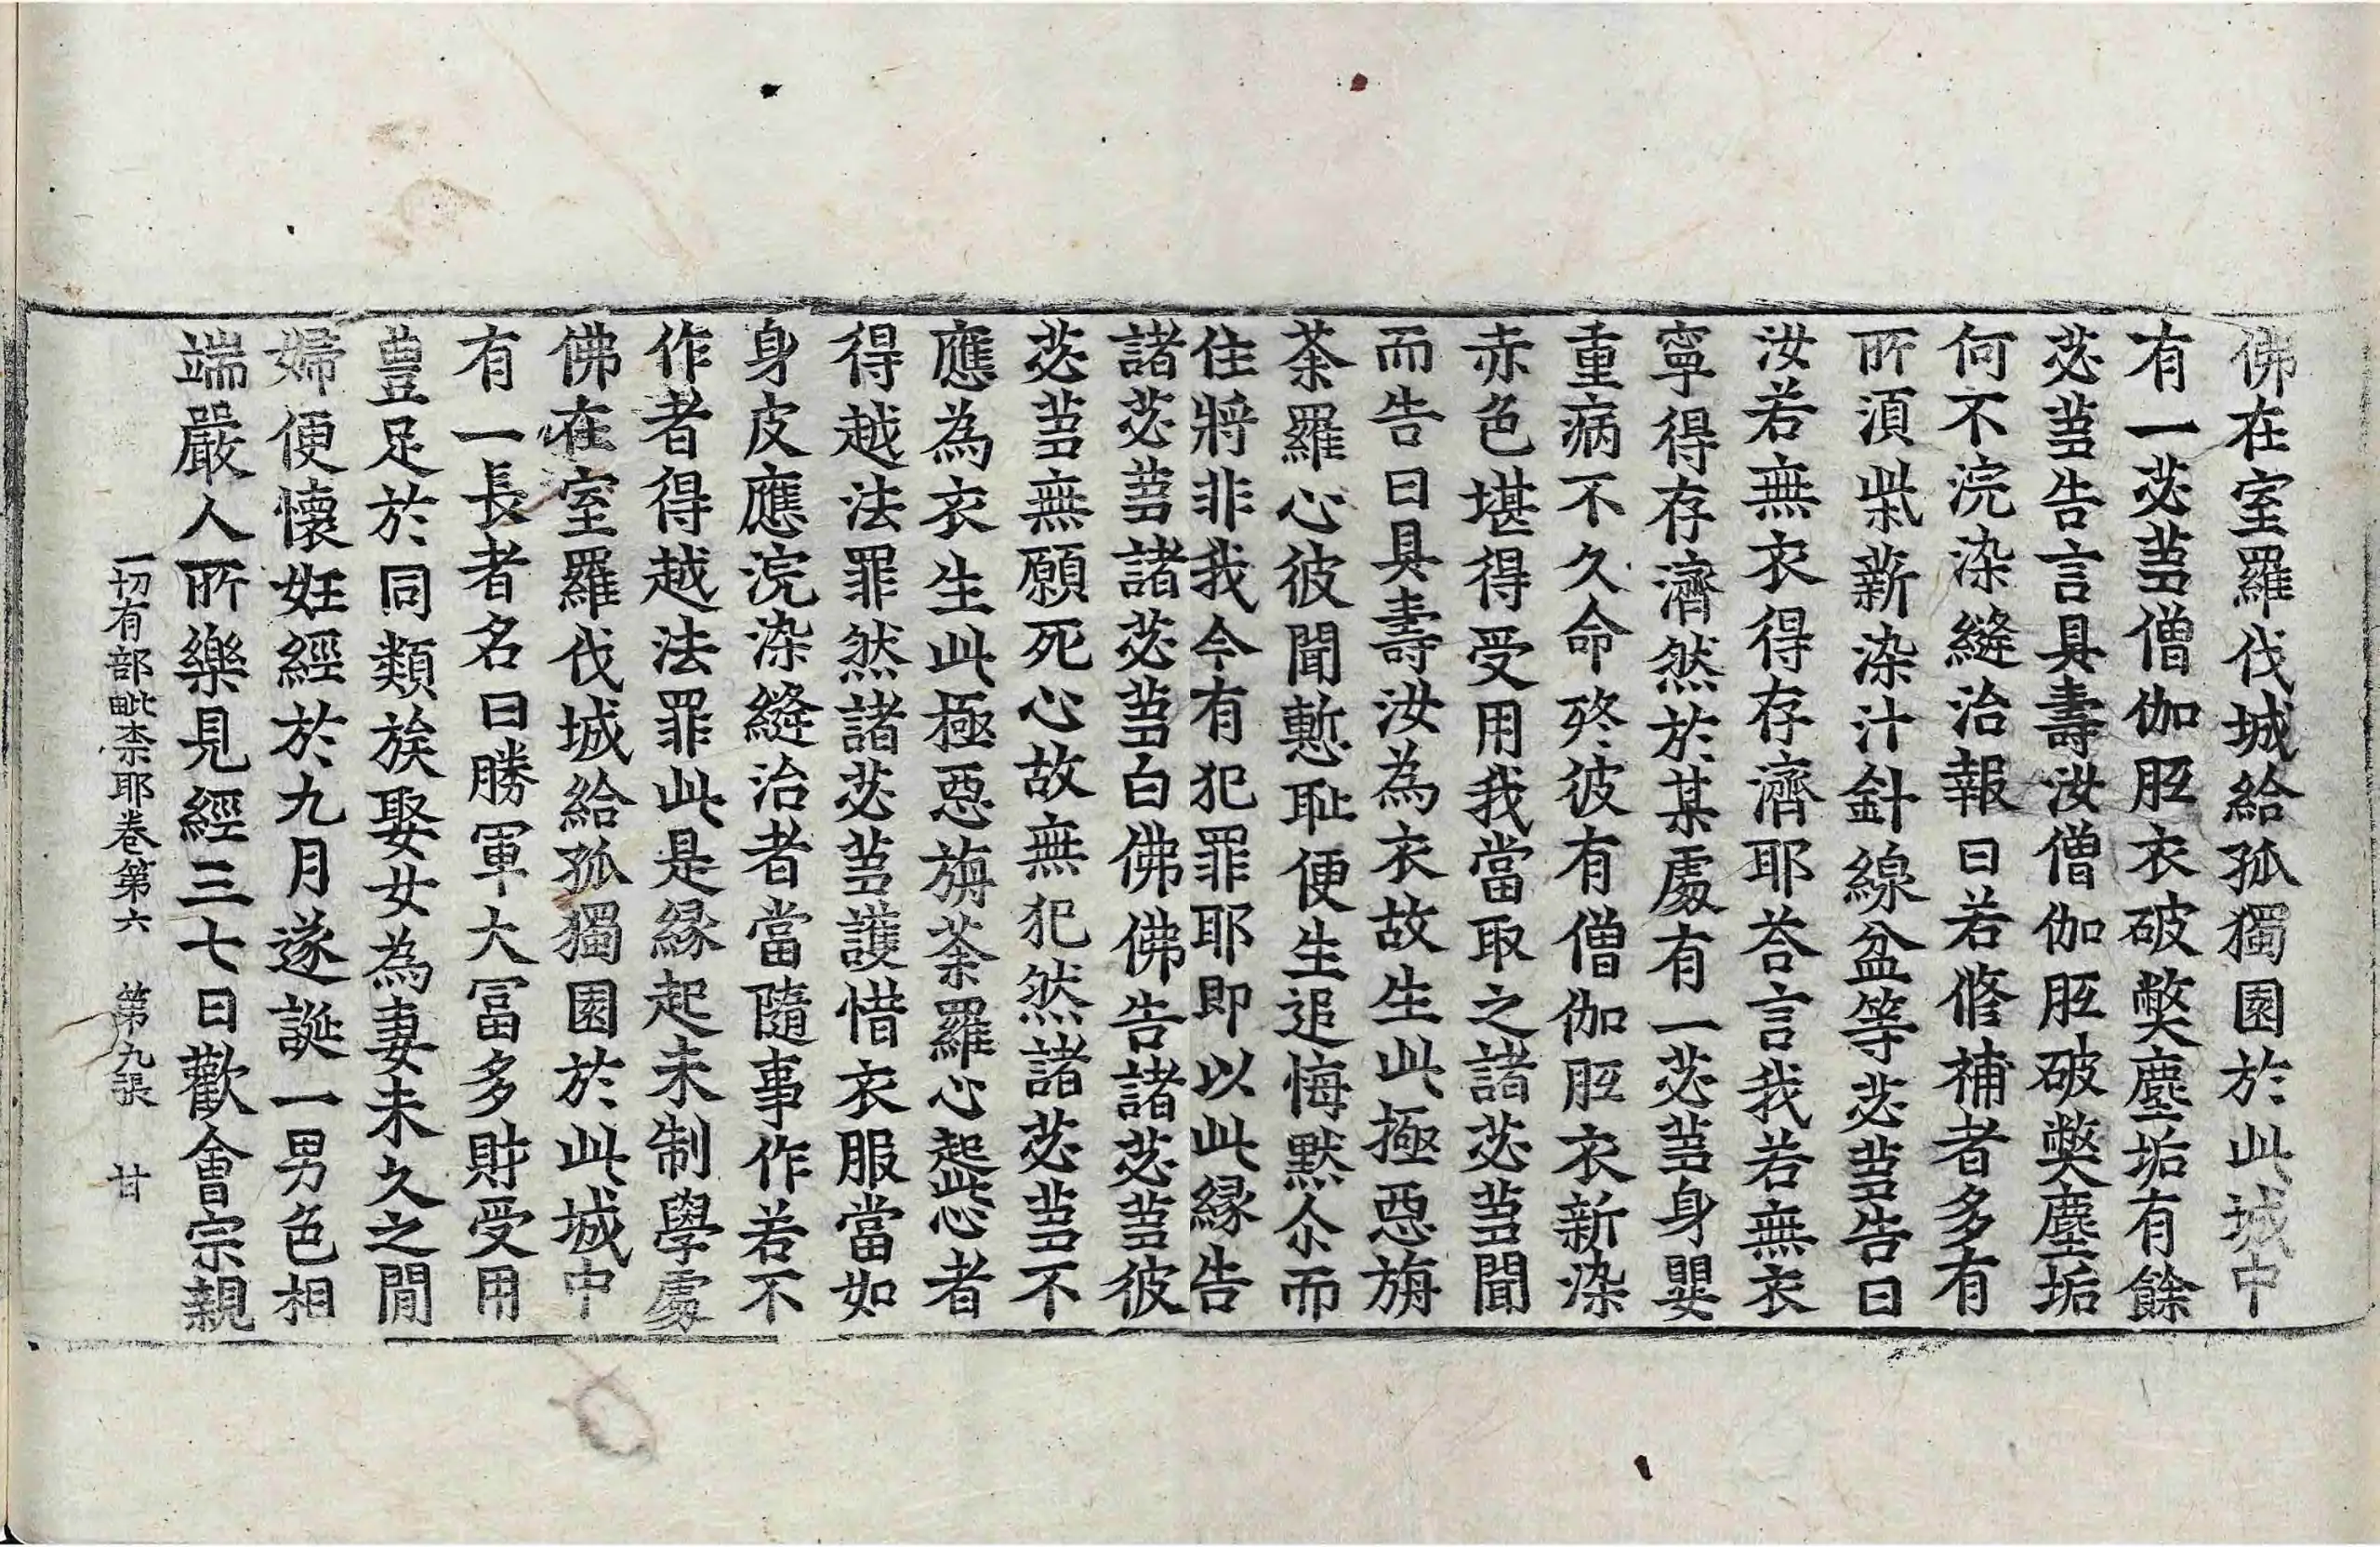 佛在室羅伐城給孤獨園於此城中
有一苾芻僧伽胝衣破弊塵垢有餘
苾芻告言具壽汝僧伽胝破弊塵垢
何不浣染縫治報曰若修補者多有
所須柴薪染汁針線盆等苾芻告曰
汝若無衣得存濟耶荅言我若無衣
寧得存濟然於某處有一苾芻身嬰
重病不久命終彼有僧伽胝衣新染
赤色堪得受用我當取之諸苾芻聞
而告曰具壽汝為衣故生此極惡旃
荼羅心彼聞慙恥便生追悔默尒而
住將非我今有犯罪耶即以此緣告
諸苾芻諸苾芻白佛佛告諸苾芻彼
苾芻無願死心故無犯然諸苾芻不
應為衣生此極惡旃荼羅心起此心者
得越法罪然諸苾芻護惜衣服當如
身皮應浣染縫治者當隨事作若不
作者得越法罪此是緣起未制學處
佛在室羅伐城給孤獨園於此城中
有一長者名曰勝軍大富多財受用
豊足於同類族娶女為妻未久之閒
婦便懷妊經於九月遂誕一男色相
端嚴人所樂見經三七日歡會宗親
一切有部毗柰耶卷第六 第九張 甘